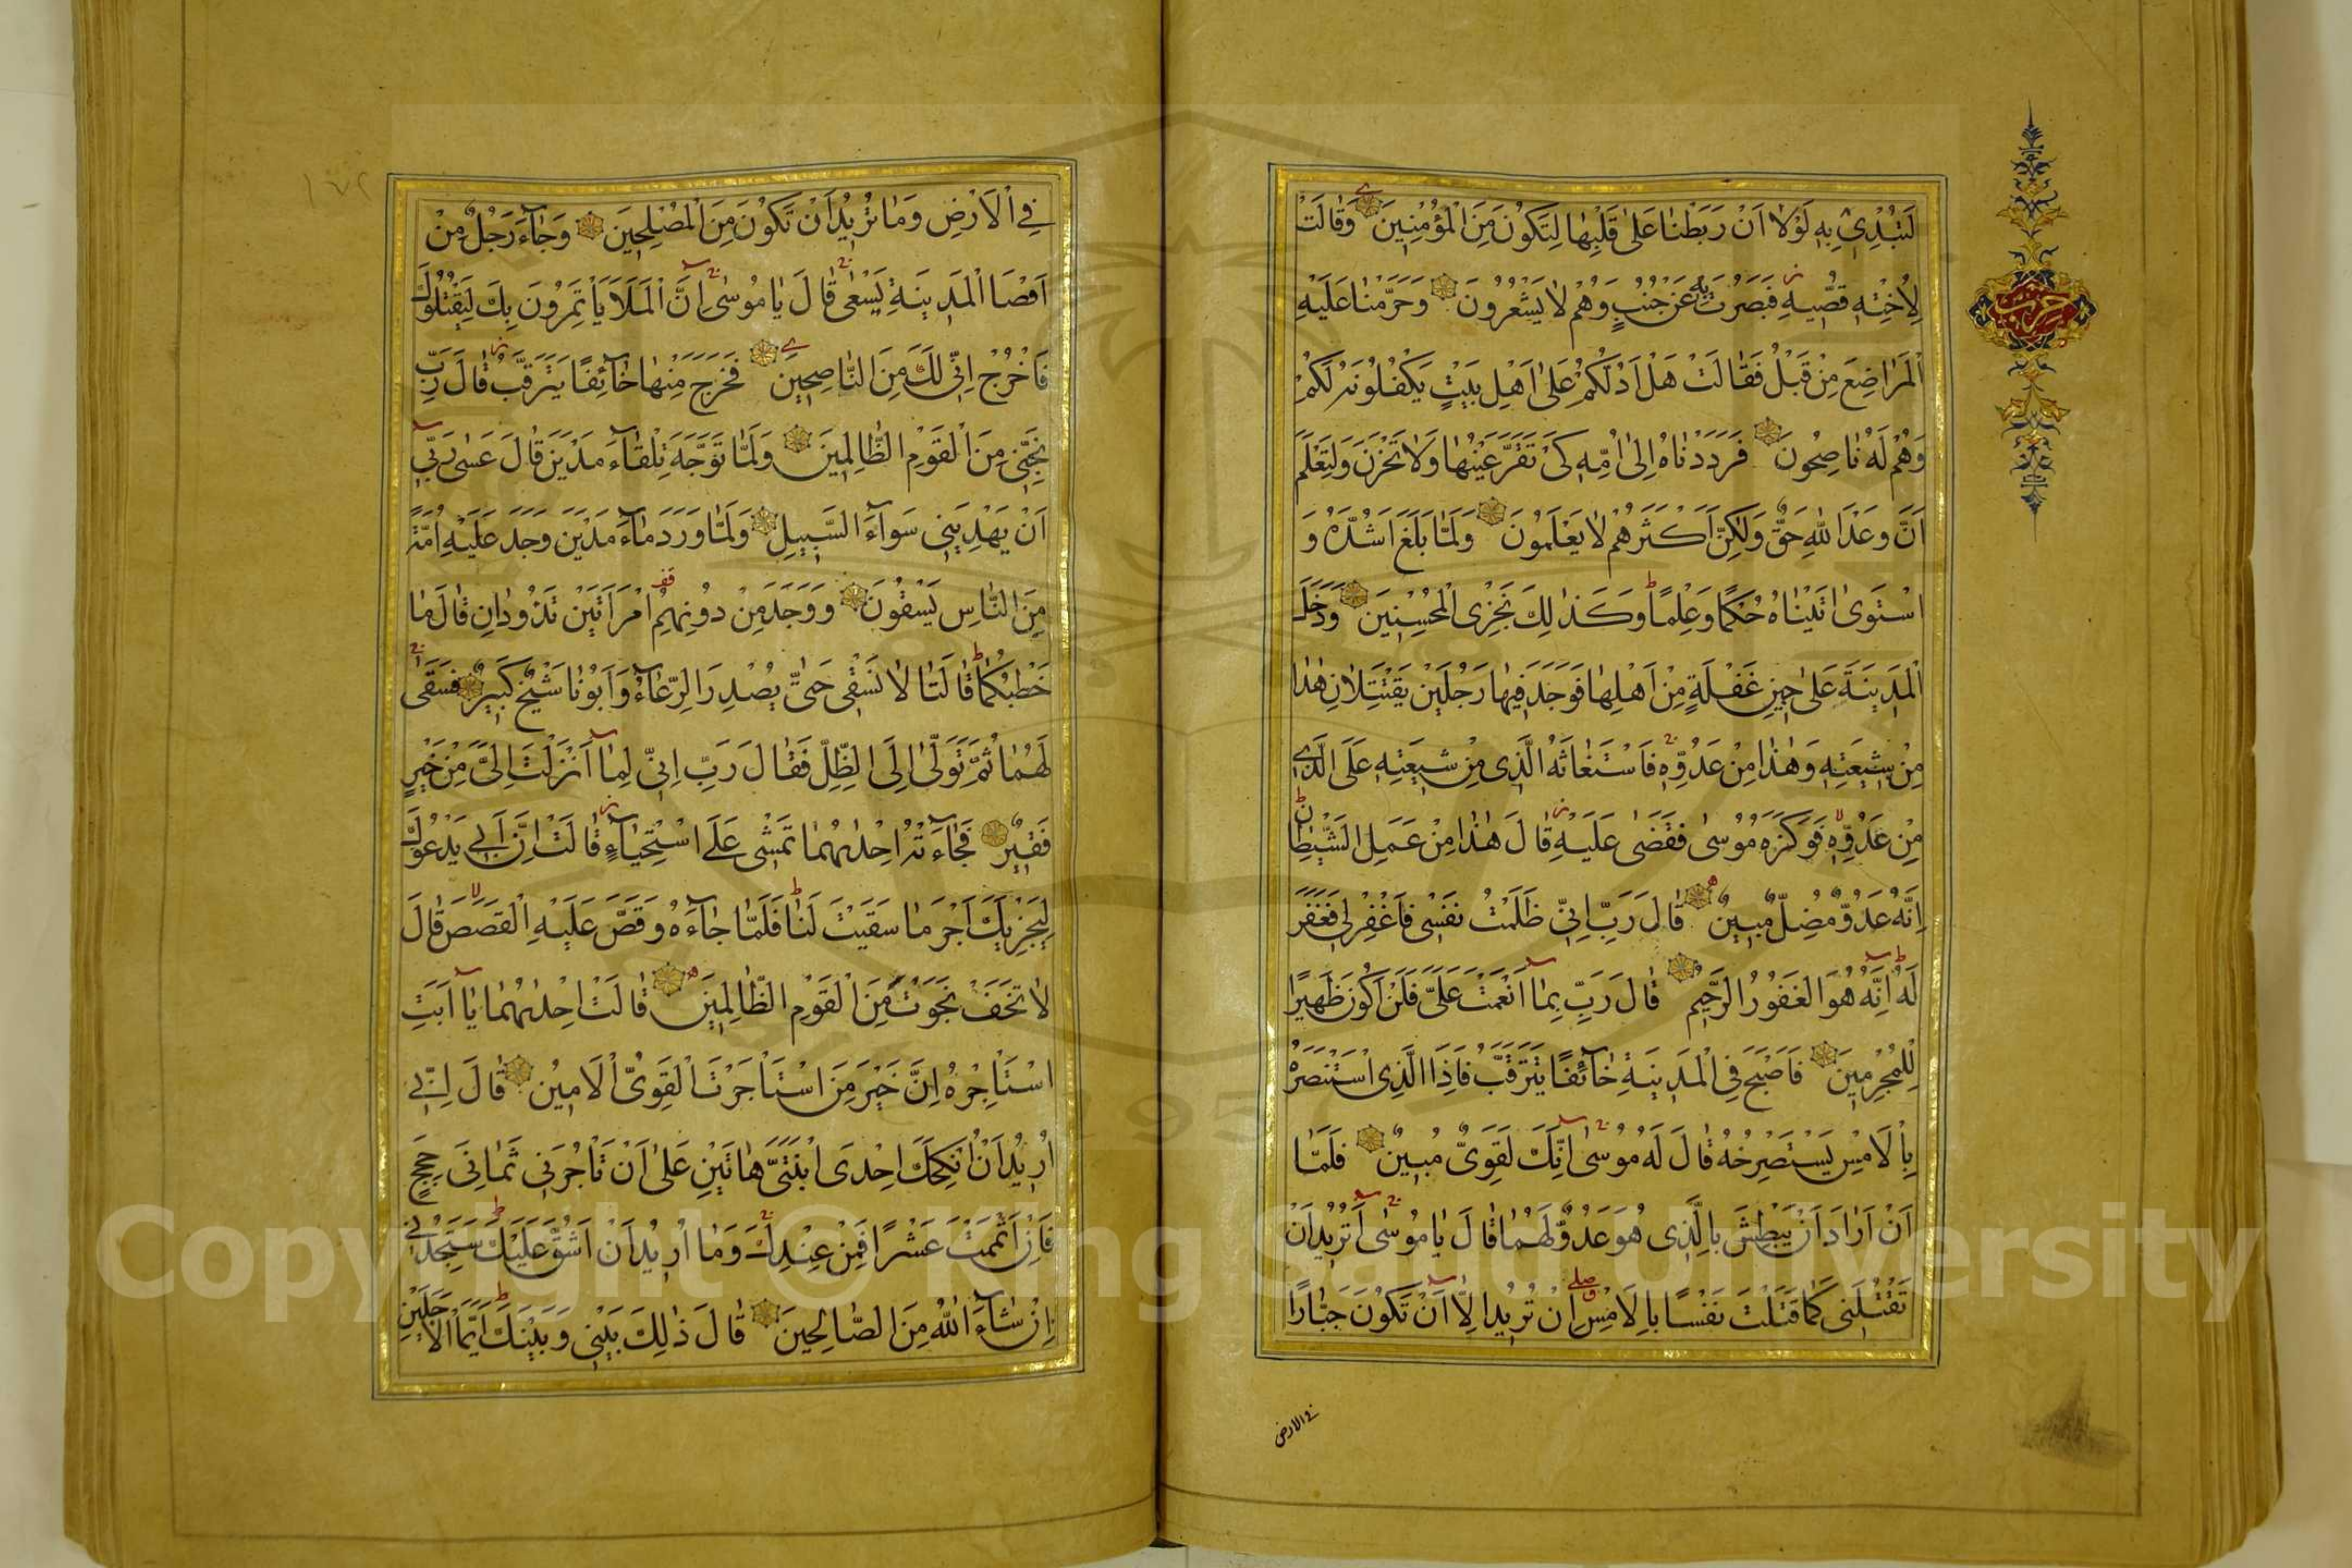 لَتُبْدِي بِهِ لَوْلَا اَنْ رَبَطْنَا عَلٰى قَلْبِهَا لِتَكُونَ مِنَ الْمُؤْمِنِينَ وَقَالَتْ
لِاُخْتِهِ قُصِّيهِ فَبَصُرَتْ بِهِ عَنْ جُنُبٍ وَهُمْ لَا يَشْعُرُونَ وَحَرَّمْنَا عَلَيْهِ
الْمَرَاضِعَ مِنْ قَبْلُ فَقَالَتْ هَلْ اَدُلُّكُمْ عَلٰى اَهْلِ بَيْتٍ يَكْفُلُونَهُ لَكُمْ
وَهُمْ لَهُ نَاصِحُونَ فَرَدَدْنَاهُ اِلٰى اُمِّهِ كَيْ تَقَرَّ عَيْنُهَا وَلَا تَحْزَنَ وَلِتَعْلَمَ
اَنَّ وَعْدَ اللّٰهِ حَقٌّ وَلٰكِنَّ اَكْثَرَهُمْ لَا يَعْلَمُونَ وَلَمَّا بَلَغَ اَشُدَّهُ وَ
اسْتَوٰى اٰتَيْنَاهُ حُكْمًا وَعِلْمًا وَكَذٰلِكَ نَجْزِي الْمُحْسِنِينَ وَدَخَلَ
الْمَدِينَةَ عَلٰى حِينِ غَفْلَةٍ مِنْ اَهْلِهَا فَوَجَدَ فِيهَا رَجُلَيْنِ يَقْتَتِلَانِ هٰذَا
مِنْ شِيعَتِهِ وَهٰذَا مِنْ عَدُوِّهِ فَاسْتَغَاثَهُ الَّذِي مِنْ شِيعَتِهِ عَلَى الَّذِي
مِنْ عَدُوِّهِ فَوَكَزَهُ مُوسٰى فَقَضٰى عَلَيْهِ قَالَ هٰذَا مِنْ عَمَلِ الشَّيْطَانِ
اِنَّهُ عَدُوٌّ مُضِلٌّ مُبِينٌ قَالَ رَبِّ اِنِّي ظَلَمْتُ نَفْسِي فَاغْفِرْ لِي فَغَفَرَ
لَهُ اِنَّهُ هُوَ الْغَفُورُ الرَّحِيمُ قَالَ رَبِّ بِمَا اَنْعَمْتَ عَلَيَّ فَلَنْ اَكُونَ ظَهِيرًا
لِلْمُجْرِمِينَ فَاَصْبَحَ فِي الْمَدِينَةِ خَائِفًا يَتَرَقَّبُ فَاِذَا الَّذِي اسْتَنْصَرَهُ
بِالْاَمْسِ يَسْتَصْرِخُهُ قَالَ لَهُ مُوسٰى اِنَّكَ لَغَوِيٌّ مُبِينٌ فَلَمَّا
اَنْ اَرَادَ اَنْ يَبْطِشَ بِالَّذِي هُوَ عَدُوٌّ لَهُمَا قَالَ يَا مُوسٰى اَتُرِيدُ اَنْ
تَقْتُلَنِي كَمَا قَتَلْتَ نَفْسًا بِالْاَمْسِ اِنْ تُرِيدُ اِلَّا اَنْ تَكُونَ جَبَّارًا
في الارض
فِي الْاَرْضِ وَمَا تُرِيدُ اَنْ تَكُونَ مِنَ الْمُصْلِحِينَ وَجَاءَ رَجُلٌ مِنْ
اَقْصَا الْمَدِينَةِ يَسْعٰى قَالَ يَا مُوسٰى اِنَّ الْمَلَاَ يَأْتَمِرُونَ بِكَ لِيَقْتُلُوكَ
فَاخْرُجْ اِنِّي لَكَ مِنَ النَّاصِحِينَ فَخَرَجَ مِنْهَا خَائِفًا يَتَرَقَّبُ قَالَ رَبِّ
نَجِّنِي مِنَ الْقَوْمِ الظَّالِمِينَ وَلَمَّا تَوَجَّهَ تِلْقَاءَ مَدْيَنَ قَالَ عَسٰى رَبِّي
اَنْ يَهْدِيَنِي سَوَاءَ السَّبِيلِ وَلَمَّا وَرَدَ مَاءَ مَدْيَنَ وَجَدَ عَلَيْهِ اُمَّةً
مِنَ النَّاسِ يَسْقُونَ وَوَجَدَ مِنْ دُونِهِمُ امْرَاَتَيْنِ تَذُودَانِ قَالَ مَا
خَطْبُكُمَا قَالَتَا لَا نَسْقِي حَتّٰى يُصْدِرَ الرِّعَاءُ وَاَبُونَا شَيْخٌ كَبِيرٌ فَسَقٰى
لَهُمَا ثُمَّ تَوَلّٰى اِلَى الظِّلِّ فَقَالَ رَبِّ اِنِّي لِمَا اَنْزَلْتَ اِلَيَّ مِنْ خَيْرٍ
فَقِيرٌ فَجَاءَتْهُ اِحْدٰىهُمَا تَمْشِي عَلَى اسْتِحْيَاءٍ قَالَتْ اِنَّ اَبِي يَدْعُوكَ
لِيَجْزِيَكَ اَجْرَ مَا سَقَيْتَ لَنَا فَلَمَّا جَاءَهُ وَقَصَّ عَلَيْهِ الْقَصَصَ قَالَ
لَا تَخَفْ نَجَوْتَ مِنَ الْقَوْمِ الظَّالِمِينَ قَالَتْ اِحْدٰىهُمَا يَا اَبَتِ
اسْتَأْجِرْهُ اِنَّ خَيْرَ مَنِ اسْتَأْجَرْتَ الْقَوِيُّ الْاَمِينُ قَالَ اِنِّي
اُرِيدُ اَنْ اُنْكِحَكَ اِحْدَى ابْنَتَيَّ هَاتَيْنِ عَلٰى اَنْ تَأْجُرَنِي ثَمَانِيَ حِجَجٍ
فَاِنْ اَتْمَمْتَ عَشْرًا فَمِنْ عِنْدِكَ وَمَا اُرِيدُ اَنْ اَشُقَّ عَلَيْكَ سَتَجِدُنِي
اِنْ شَاءَ اللّٰهُ مِنَ الصَّالِحِينَ قَالَ ذٰلِكَ بَيْنِي وَبَيْنَكَ اَيَّمَا الْاَجَلَيْنِ
١٧٢
Copyright © King Saud University